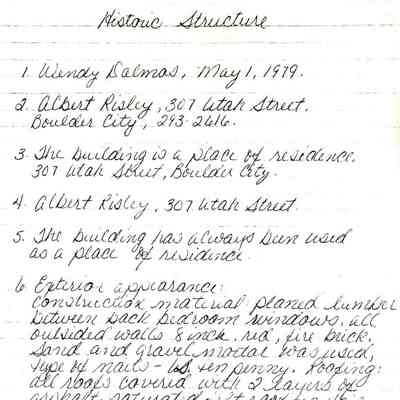 Historic Structure
1. Wendy Dalmas, May 1, 1979.
2. Albert Risley, 307 Utah Street.
Boulder City, 293-2616.
3. The building is a place of residence.
307 Utah Street, Boulder City.
4. Albert Risley, 307 Utah Street.
5. The building has always been used
as a place of residence.
6. Exterior appearance:
construction material planed lumber
between back bedroom windows. all
outsided walls 8 inch. red, fire brick.
Sand and gravel mortar was used,
type of nails - ten penny. Roofing:
all roofs covered with 2 layers of
asphalt saturated